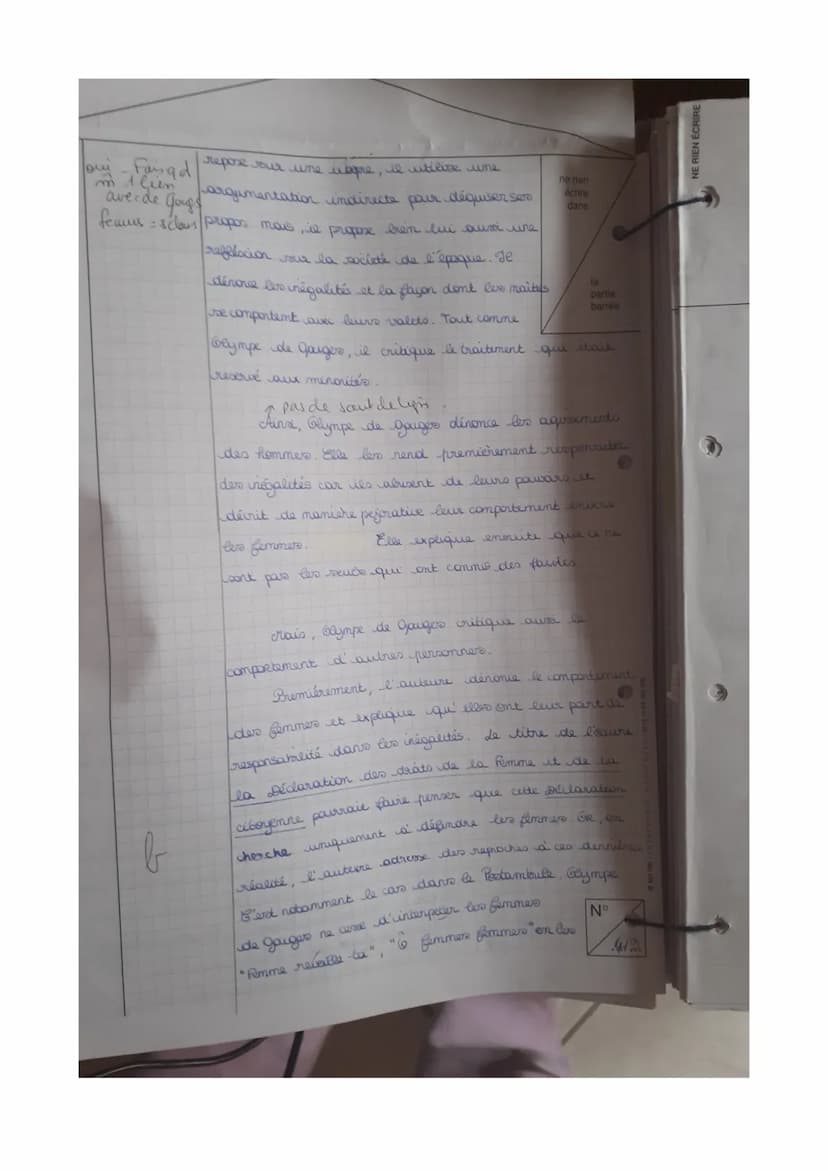 NE RIEN ÉCRIRE
ne rien
écrire
dans
la
partie
barrée
oui - Fais qd
m̂ 1 lien
avec de Goug
femme = esclav
repose sur une utopie, il utilise une
argumentation indirecte pour déguiser ses
propos mais, il propose bien lui aussi une
refléxion sur la société de l'époque. Il
dénonce les inégalités et la façon dont les maîtres
se comportent avec leurs valets. Tout comme
Olympe de Gouges, il critique le traitement qui était
reservé aux minorités.
↑ pas de saut de ligne.
Ainsi, Olympe de Gouges dénonce les agissements
des hommes. Elle les rend premièrement responsables
des inégalités car ils abusent de leurs pouvoirs et
décrit de manière pejorative leur comportement envers
les femmes. Elle explique ensuite que ce ne
sont pas les seuls qui ont commis des fautes
Mais, Olympe de Gouges critique aussi le
comportement d'autres personnes.
Premièrement, l'auteure dénonce le comportement
des femmes et explique qu'elles ont leur part de
responsabilité dans les inégalités. Le titre de l'œuvre
la Déclaration des droits de la Femme et de la
citoyenne pourrait faire penser que cette Déclaration
cherche uniquement à défendre les femmes Or, en
réalité, l'auteure adresse des reproches à ces dernières
C'est notamment le cas dans le Postambule. Olympe
de Gouges ne cesse d'interpeler les femmes
"Femme reveille-toi", "Ô femmes femmes" en les
b
N°